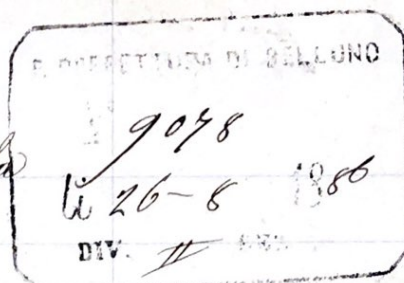 R. PREFETTURA DI BELLUNO
9078
li 26-8 1886
DIV. II SEZ.